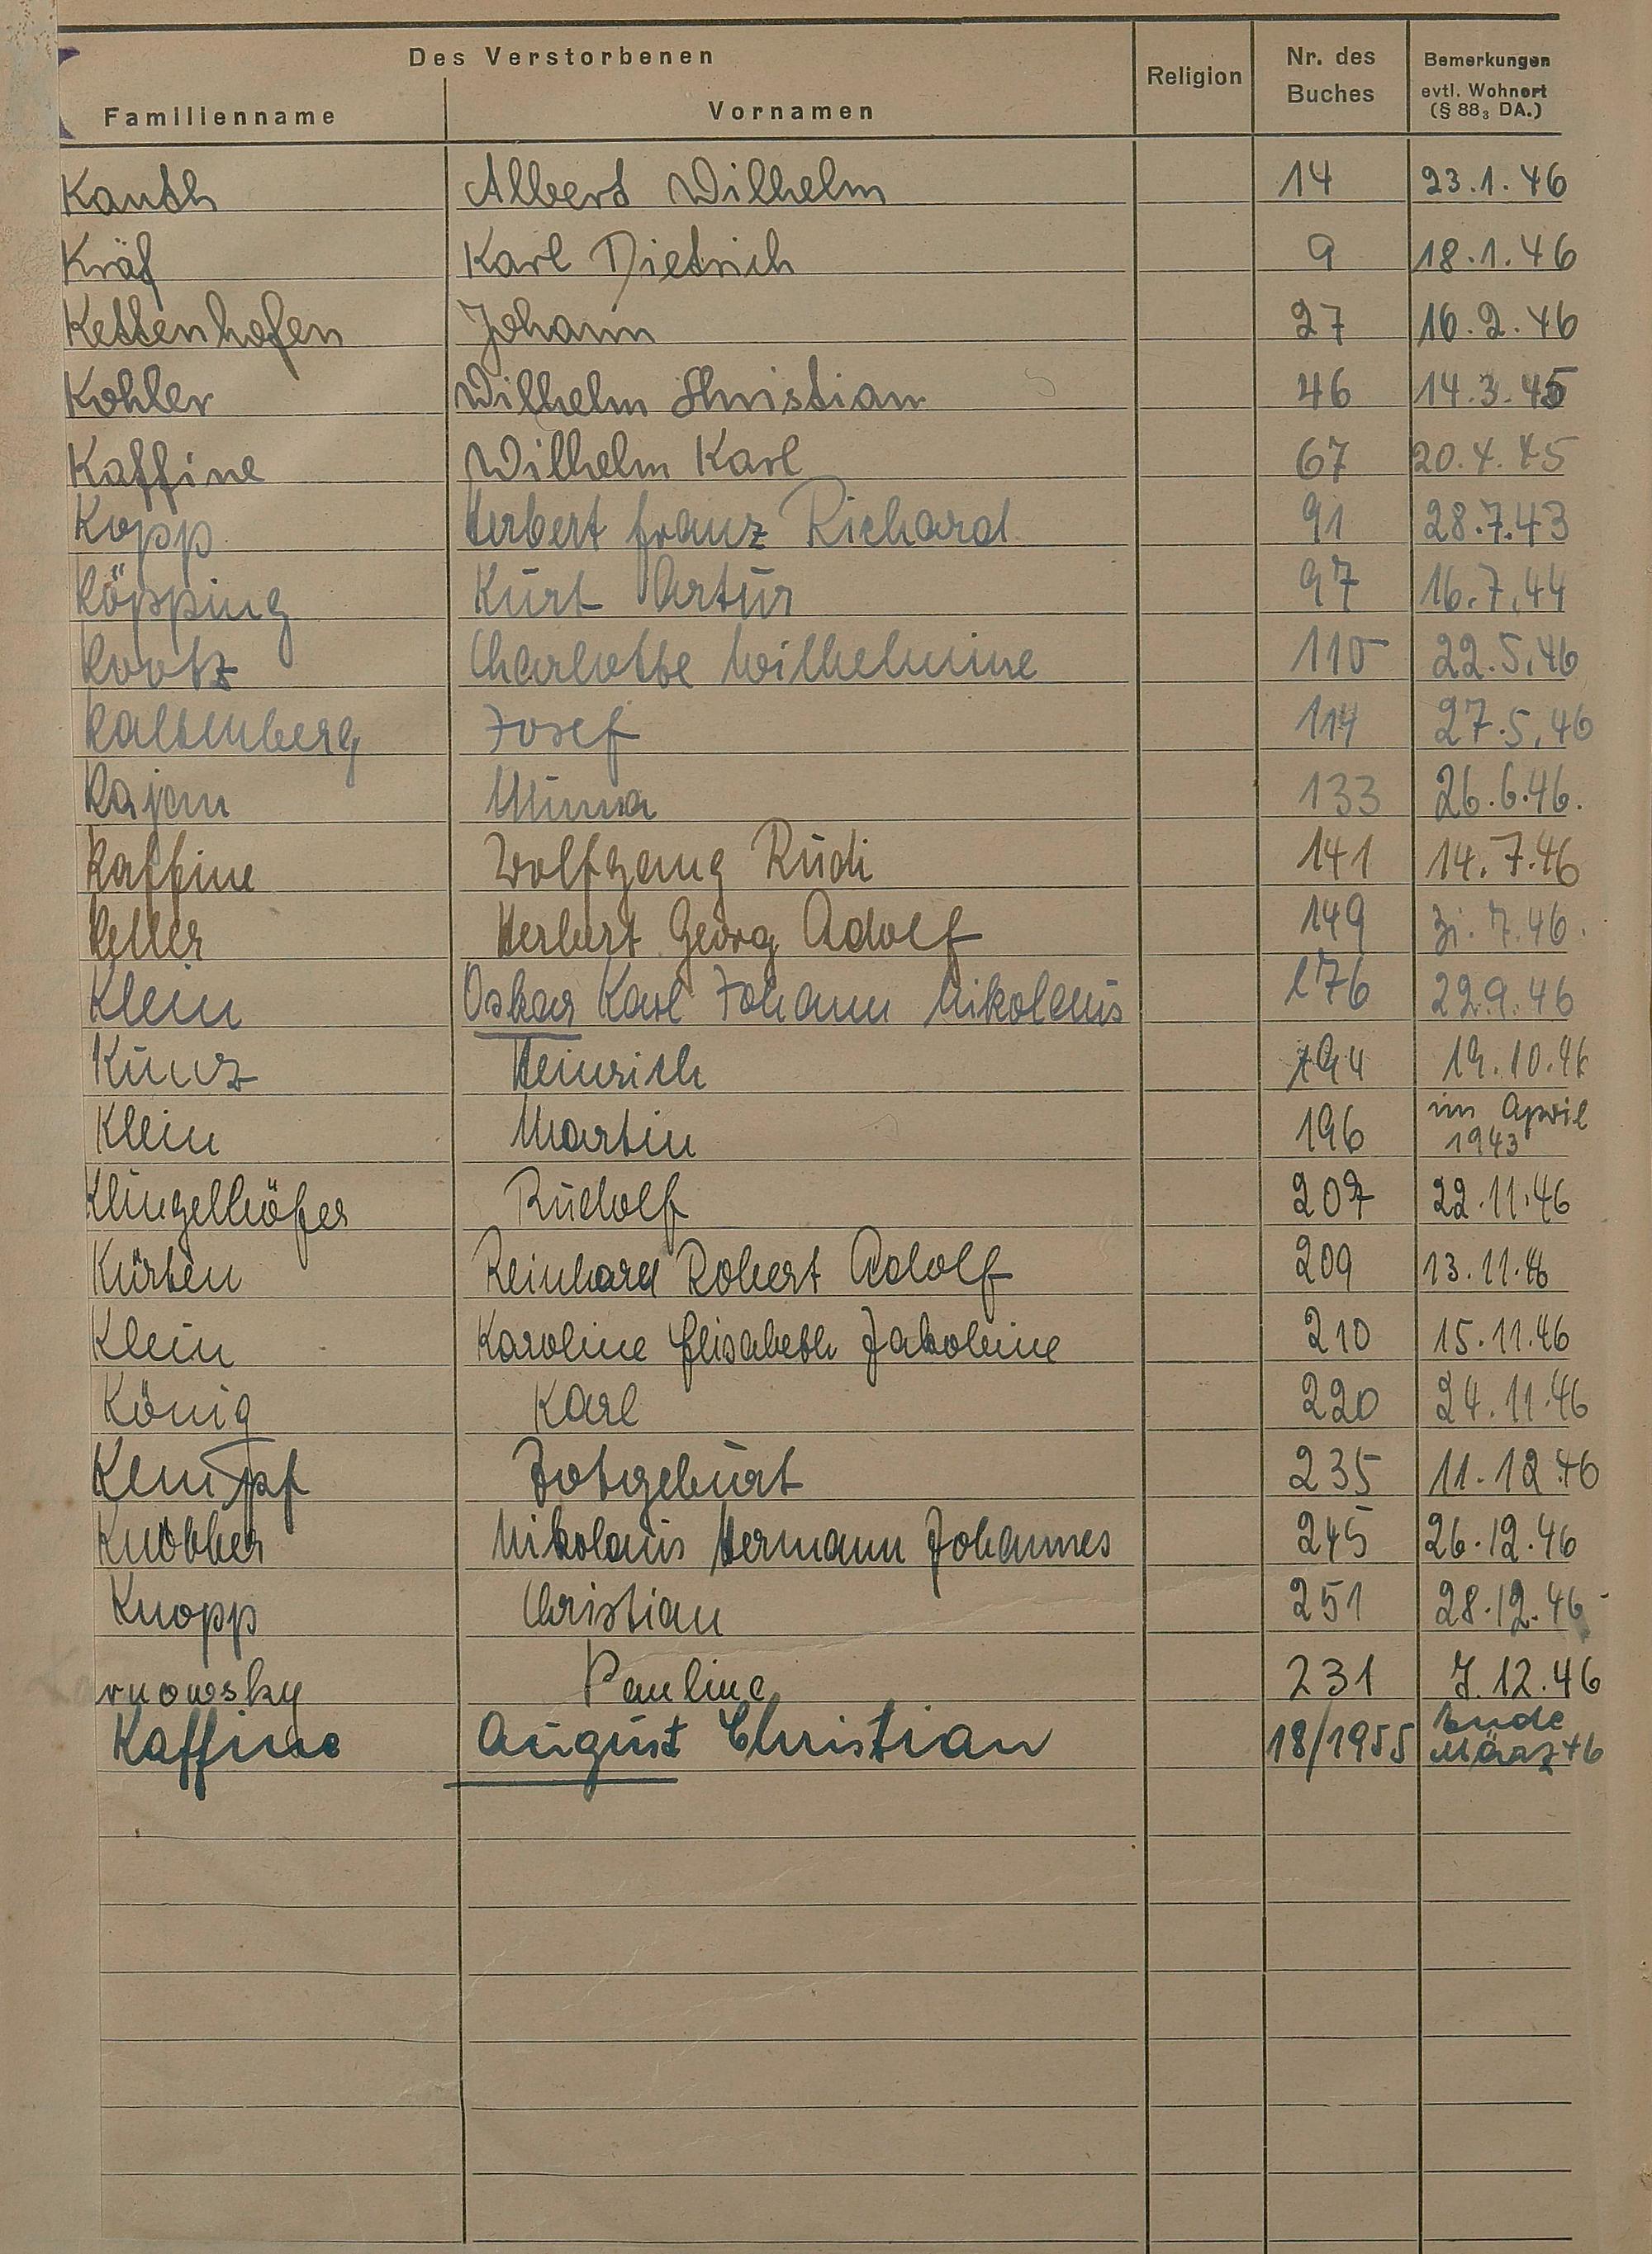 Des Verstorbenen
Familienname Vornamen Religion Nr. des Buches Bemerkungen evtl. Wohnort (§ 88₃ DA.)
Kauth Albert Wilhelm 14 23.1.46
Kräf Karl Dietrich 9 18.1.46
Kettenhofen Johann 27 16.2.46
Kohler Wilhelm Christian 46 14.3.45
Kaffine Wilhelm Karl 67 20.4.45
Kopp Herbert Franz Richard 91 28.7.43
Köpping Kurt Artur 97 16.7.44
Kootz Charlotte Wilhelmine 110 22.5.46
Kaltenberg Josef 114 27.5.46
Kajan Minna 133 26.6.46.
Kaffine Wolfgang Rudi 141 14.7.46
Keller Herbert Georg Adolf 149 7.46.
Klein Oskar Karl Johann Nikolaus 176 22.9.46
Kunz Heinrich 194 19.10.46
Klein Martin 196 im April 1943
Klingelhöfer Rudolf 207 22.11.46
Kürten Reinhard Robert Adolf 209 13.11.46
Klein Karoline Elisabeth Jakobine 210 15.11.46
König Karl 220 24.11.46
Kempf Totgeburt 235 11.12.46
Knobber Nikolaus Hermann Johannes 245 26.12.46
Knopp Christian 251 28.12.46
rnowsky Pauline 231 7.12.46
Kaffine August Christian 18/1955 Ende März 46